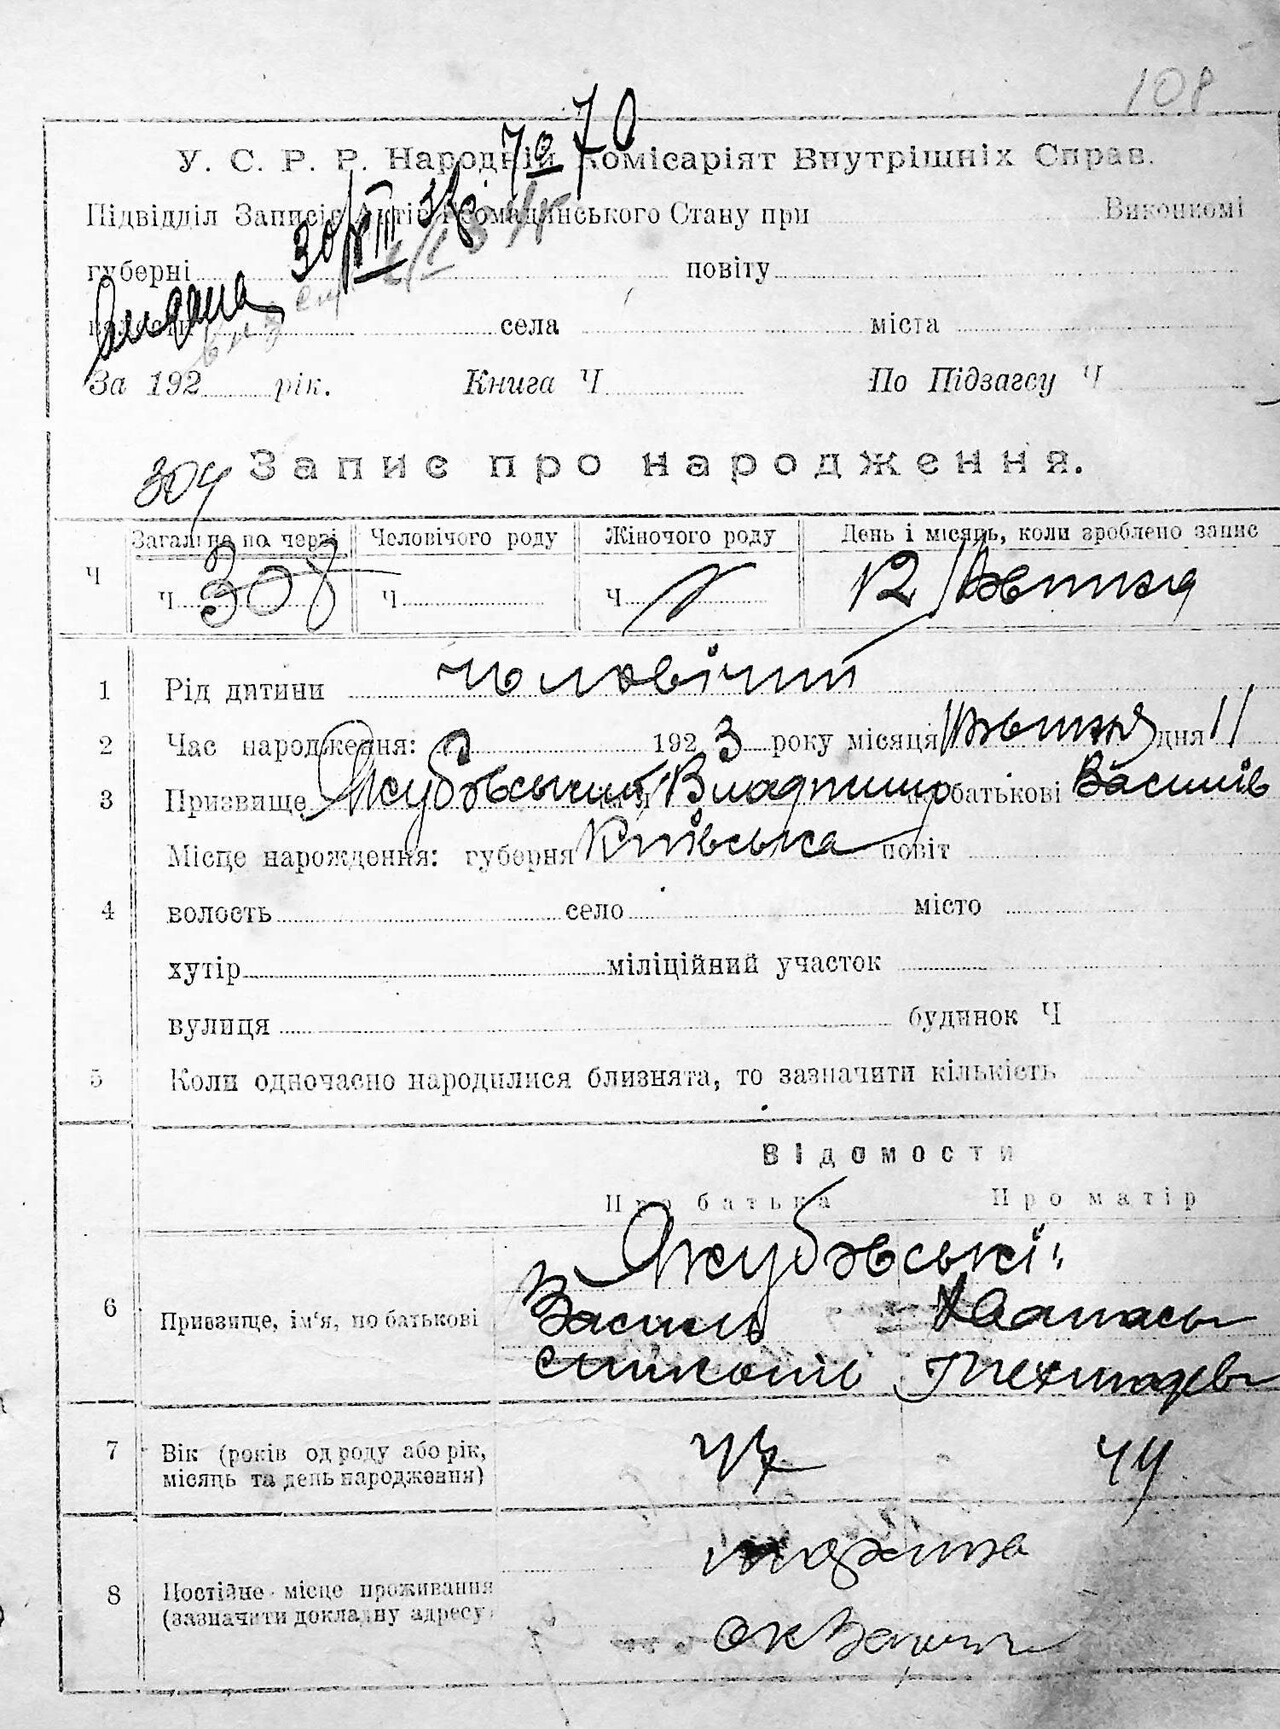 108
70
70
У. С. Р. Р. Народній Комісаріят Внутрішніх Справ.
Підвідділ Записів Актів Громадянського Стану при Виконкомі
30/VIII
губерні повіту
села міста
За 192 рік. Книга Ч По Підзагсу Ч
304 Запис про народження.
Загально по черзі Человічого роду Жіночого роду День і місяць, коли зроблено запис
Ч Ч 308 Ч Ч 12 Жовтня
1 Рід дитини чоловічий
2 Час народження: 1923 року місяця Жовтня дня 11
3 Призвище Якубовський Владимир батькові Василів
Місце нарождення: губерня Київська повіт
4 волость село місто
хутір міліційний участок
вулиця будинок Ч
5 Коли одночасно народилися близнята, то зазначити кількість
Відомости
Про батька Про матір
Якубовські
6 Призвище, ім'я, по батькові Василь
7 Вік (років од роду або рік, місяць та день народження) 47 44
8 Постійне місце проживання
(зазначити докладну адресу)